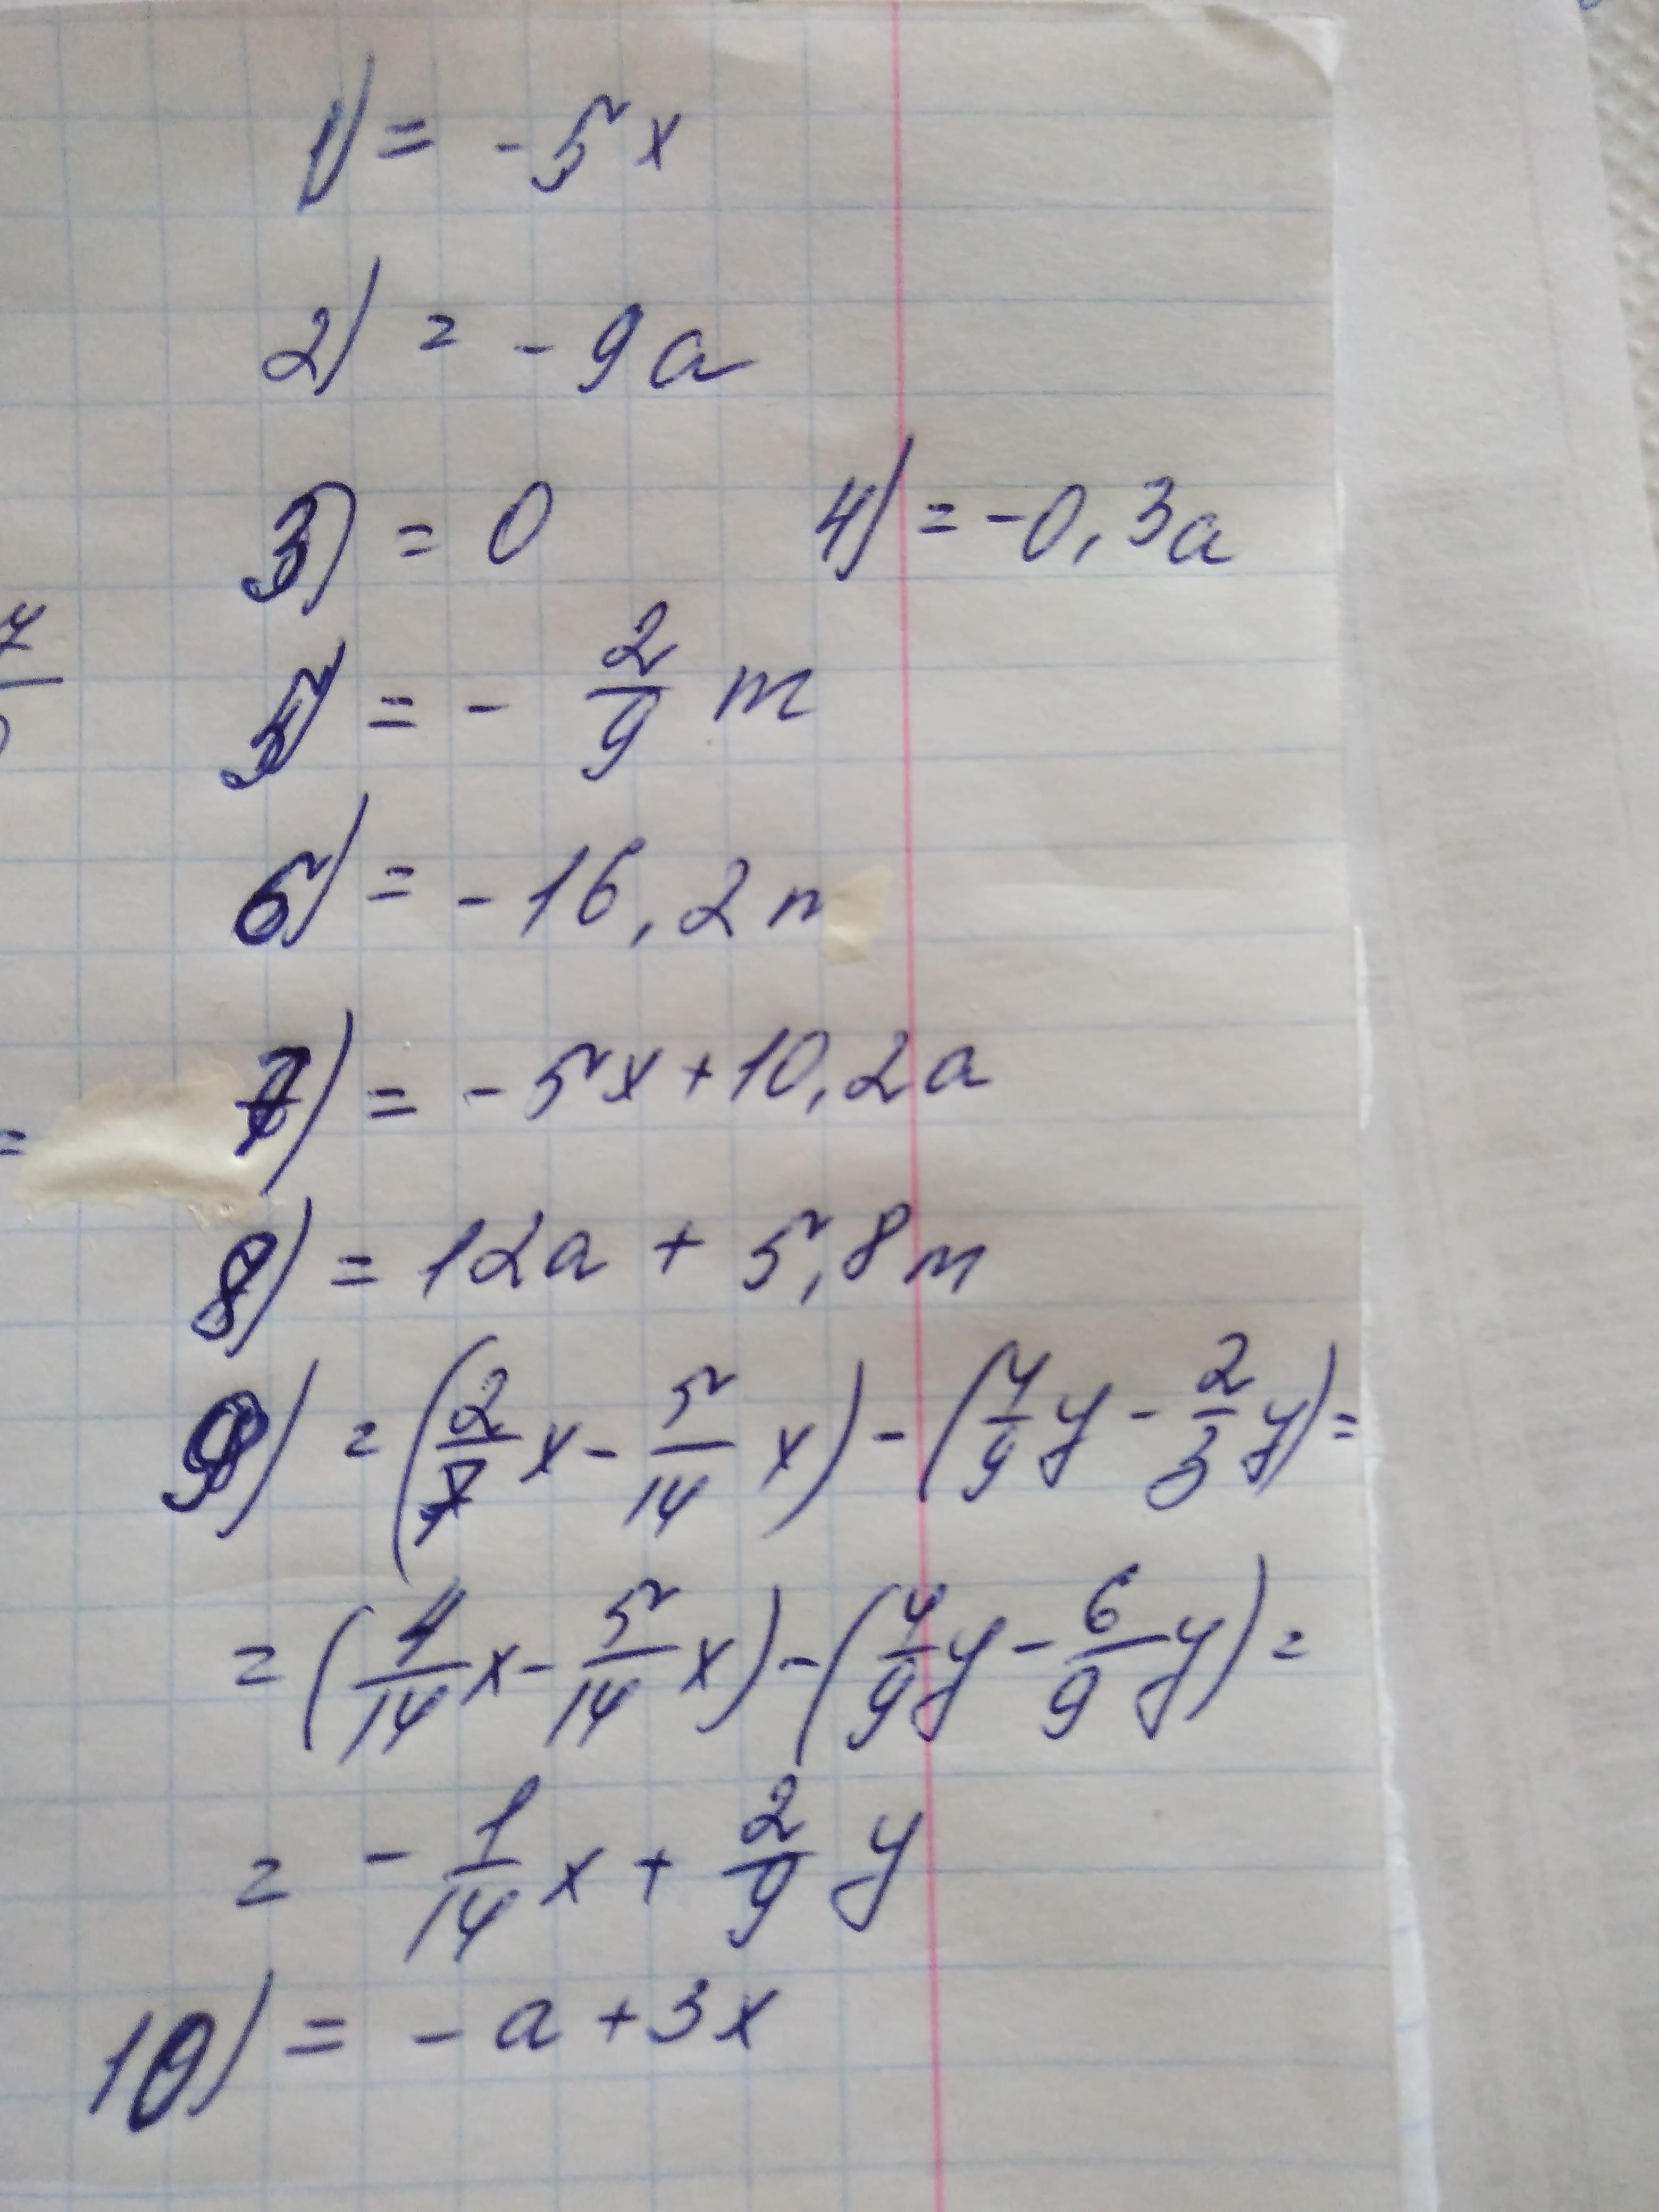 1) = -5x
2) = -9a
3) = 0 4) = -0,3a
5) = - 2/9 m
6) = -16,2m
7) = -5x+10,2a
8) = 12a + 5,8m
9) = (2/7 x - 5/14 x) - (4/9 y - 2/3 y) =
= (4/14 x - 5/14 x) - (4/9 y - 6/9 y) =
= - 1/14 x + 2/9 y
10) = -a+3x